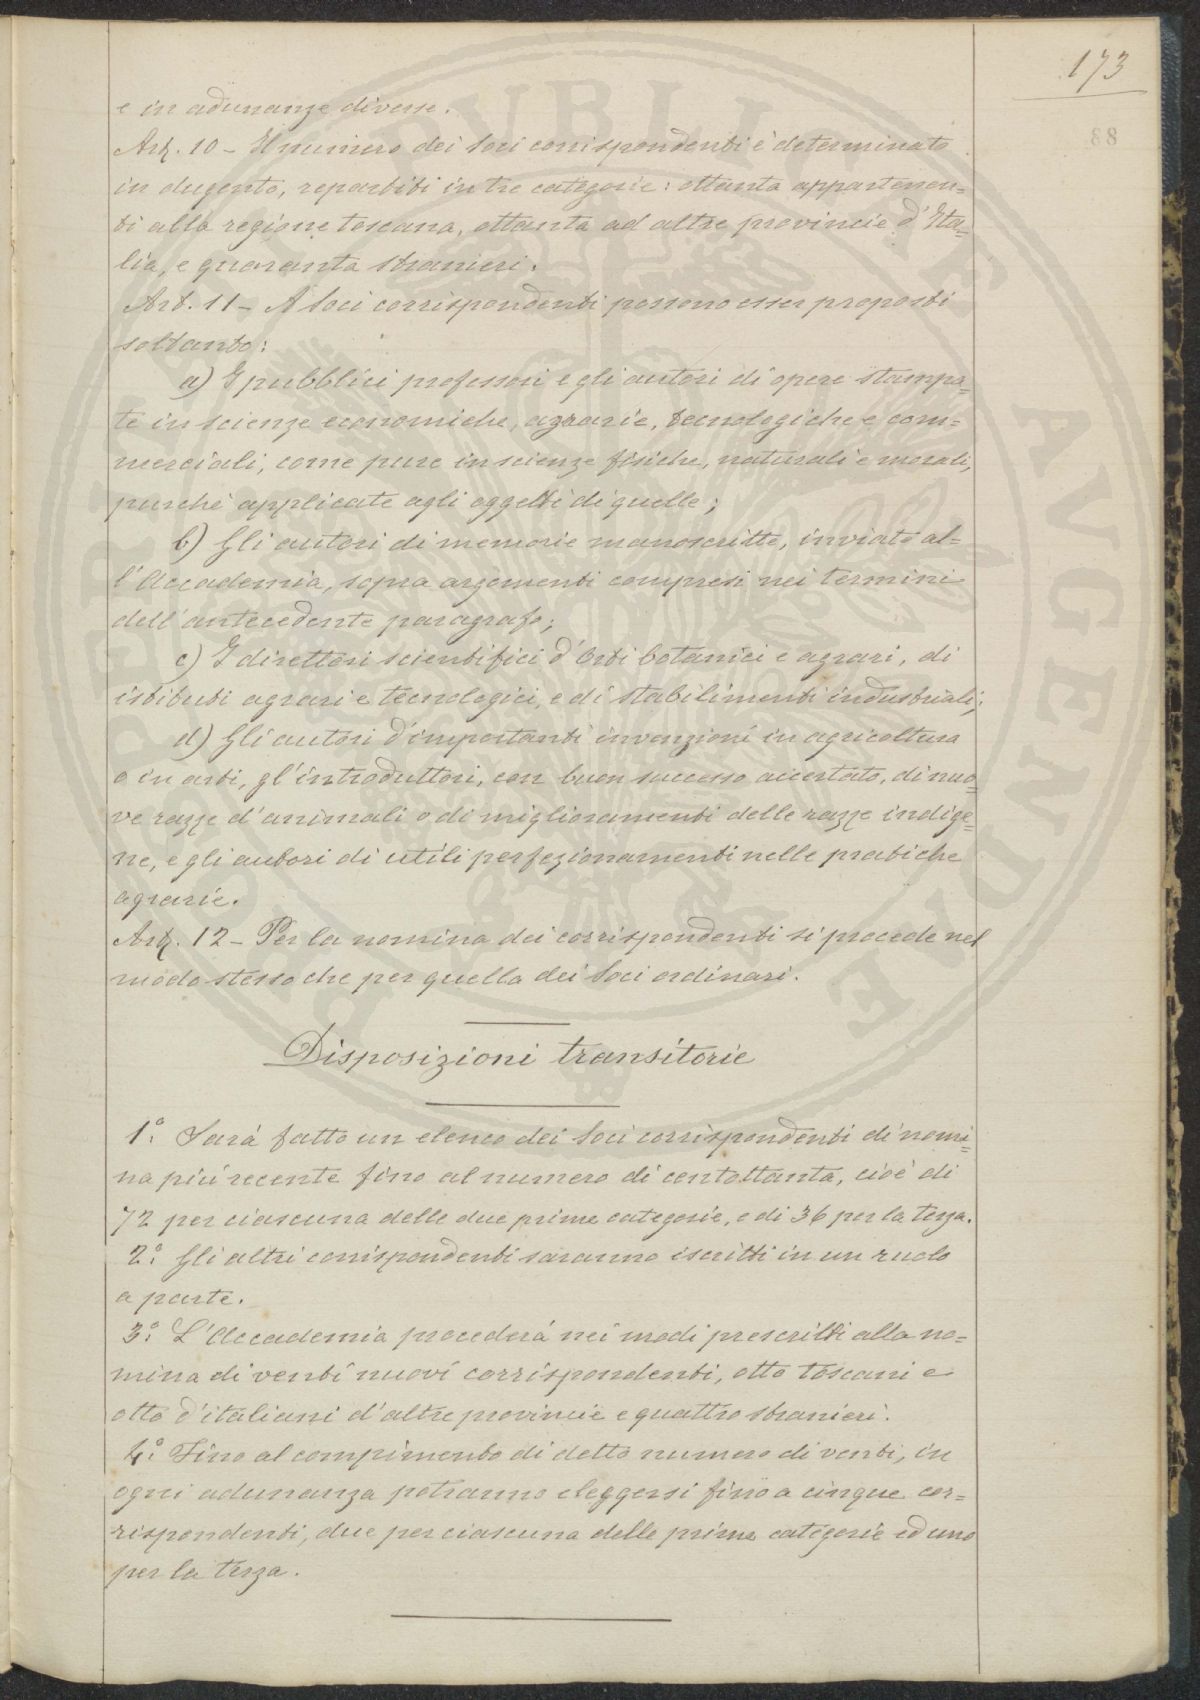 173
88
e in adunanze diverse.
Art. 10 – Il numero dei Soci corrispondenti è determinato
in dugento, repartiti in tre categorie: ottanta appartenen=
ti alla regione toscana, ottanta ad altre provincie d'Ita=
lia, e quaranta stranieri.
Art. 11 – A Soci corrispondenti possono esser proposti
soltanto:
a) I pubblici professori e gli autori di opere stampa=
te in scienze economiche, agrarie, tecnologiche e com=
merciali, come pure in scienze fisiche, naturali e morali,
purchè applicate agli oggetti di quelle;
b) Gli autori di memorie manoscritte, inviate al=
l'Accademia, sopra argomenti compresi nei termini
dell'antecedente paragrafo;
c) I direttori scientifici d'Orti botanici e agrari, di
istituti agrari e tecnologici, e di stabilimenti industriali;
d) Gli autori d'importanti invenzioni in agricoltura
o in arti, gl'introduttori, con buon successo accertato, di nuo=
ve razze d'animali o di miglioramenti delle razze indige=
ne, e gli autori di utili perfezionamenti nelle pratiche
agrarie.
Art. 12 – Per la nomina dei corrispondenti si procede nel
modo stesso che per quella dei Soci ordinari.
Disposizioni transitorie
1.° Sarà fatto un elenco dei Soci corrispondenti di nomi=
na più recente fino al numero di centottanta, cioè di
72 per ciascuna delle due prime categorie, e di 36 per la terza.
2.° Gli altri corrispondenti saranno iscritti in un ruolo
a parte.
3.° L'Accademia procederà nei modi prescritti alla no=
mina di venti nuovi corrispondenti, otto toscani e
otto d'italiani d'altre provincie e quattro stranieri.
4.° Fino al compimento di detto numero di venti, in
ogni adunanza potranno eleggersi fino a cinque cor=
rispondenti, due per ciascuna delle prime categorie ed uno
per la terza.